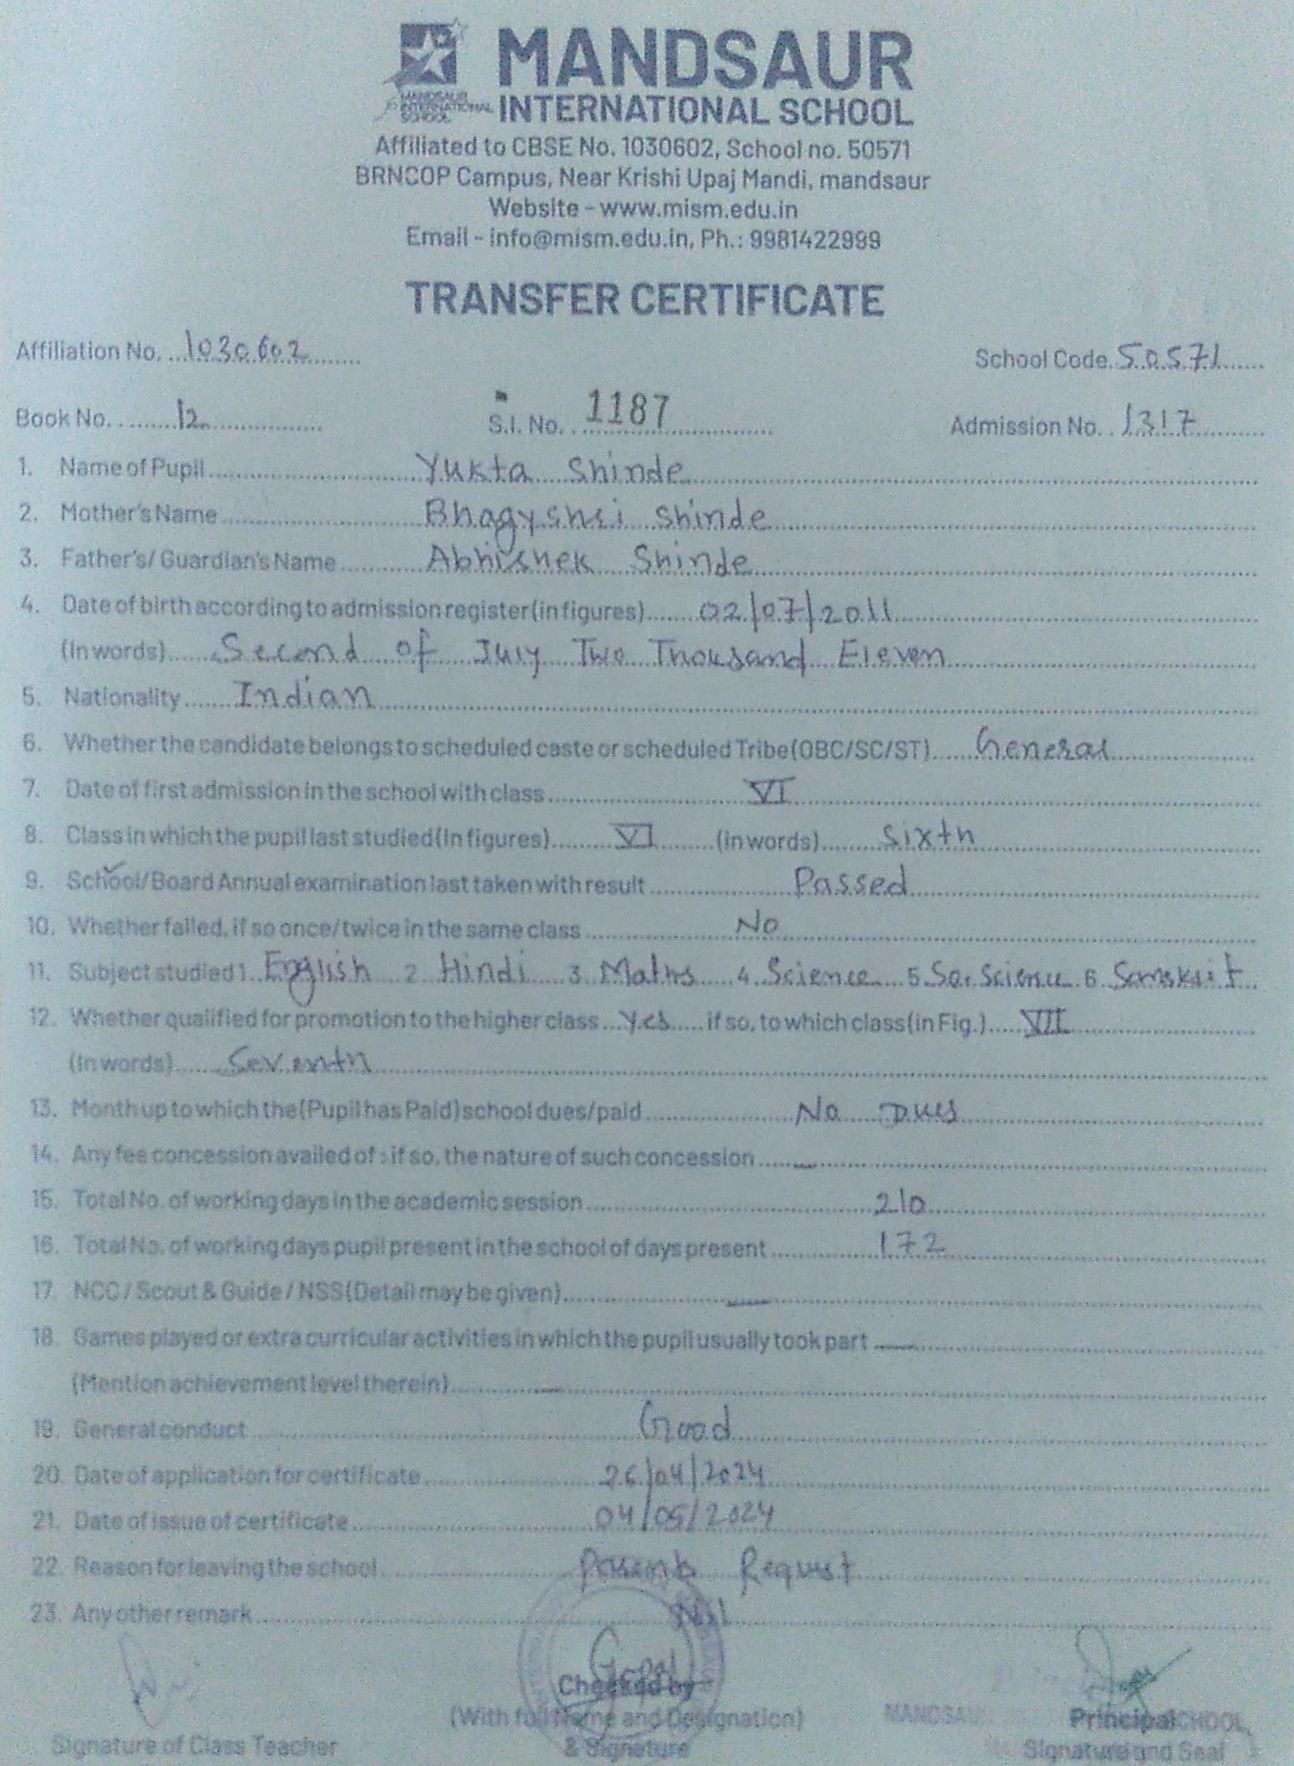 MANDSAUR
INTERNATIONAL SCHOOL
MANDSAUR
INTERNATIONAL
SCHOOL
Affiliated to CBSE No. 1030602, School no. 50571
BRNCOP Campus, Near Krishi Upaj Mandi, mandsaur
Website - www.mism.edu.in
Email - info@mism.edu.in, Ph.: 9981422999
TRANSFER CERTIFICATE
Affiliation No. 1030602 School Code. 50571
Book No. 12 S.I. No. 1187 Admission No. 1317
1. Name of Pupil Yukta Shinde
2. Mother's Name Bhagyshri Shinde
3. Father's/ Guardian's Name Abhishek Shinde
4. Date of birth according to admission register (in figures) 02/07/2011
(In words) Second of July Two Thousand Eleven
5. Nationality Indian
6. Whether the candidate belongs to scheduled caste or scheduled Tribe (OBC/SC/ST) General
7. Date of first admission in the school with class VI
8. Class in which the pupil last studied (In figures) VI (in words) Sixth
9. School/Board Annual examination last taken with result Passed
10. Whether failed, if so once/twice in the same class No
11. Subject studied 1. English 2 Hindi 3. Maths 4. Science 5. So. Science 6. Samskrit
12. Whether qualified for promotion to the higher class Yes if so, to which class (in Fig.) VII
(In words) Seventh
13. Month up to which the (Pupil has Paid) school dues/paid No Dues
14. Any fee concession availed of : if so, the nature of such concession —
15. Total No. of working days in the academic session 210
16. Total No. of working days pupil present in the school of days present 172
17. NCC / Scout & Guide / NSS (Detail may be given) —
18. Games played or extra curricular activities in which the pupil usually took part —
(Mention achievement level therein) —
19. General conduct Good
20. Date of application for certificate 26/04/2024
21. Date of issue of certificate 04/05/2024
22. Reason for leaving the school Parents Request
23. Any other remark Nil
Gopal
Checked by
(With full Name and Designation)
& Signature
Signature of Class Teacher
MANDSAUR SCHOOL
Principal
Signature and Seal